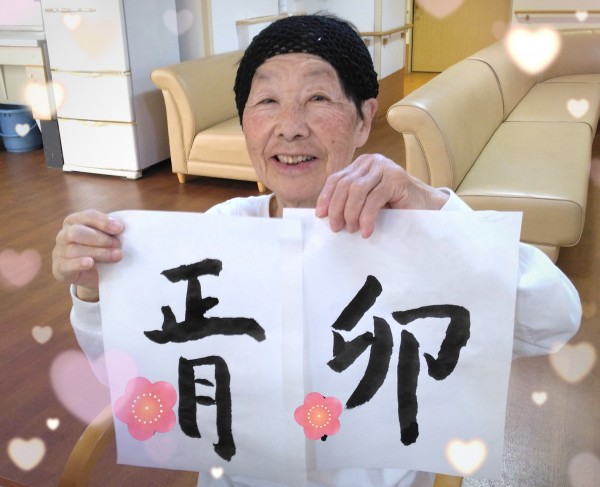 正月
卯